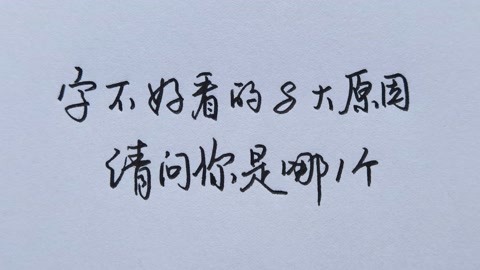 字不好看的8大原因
请问你是哪1个